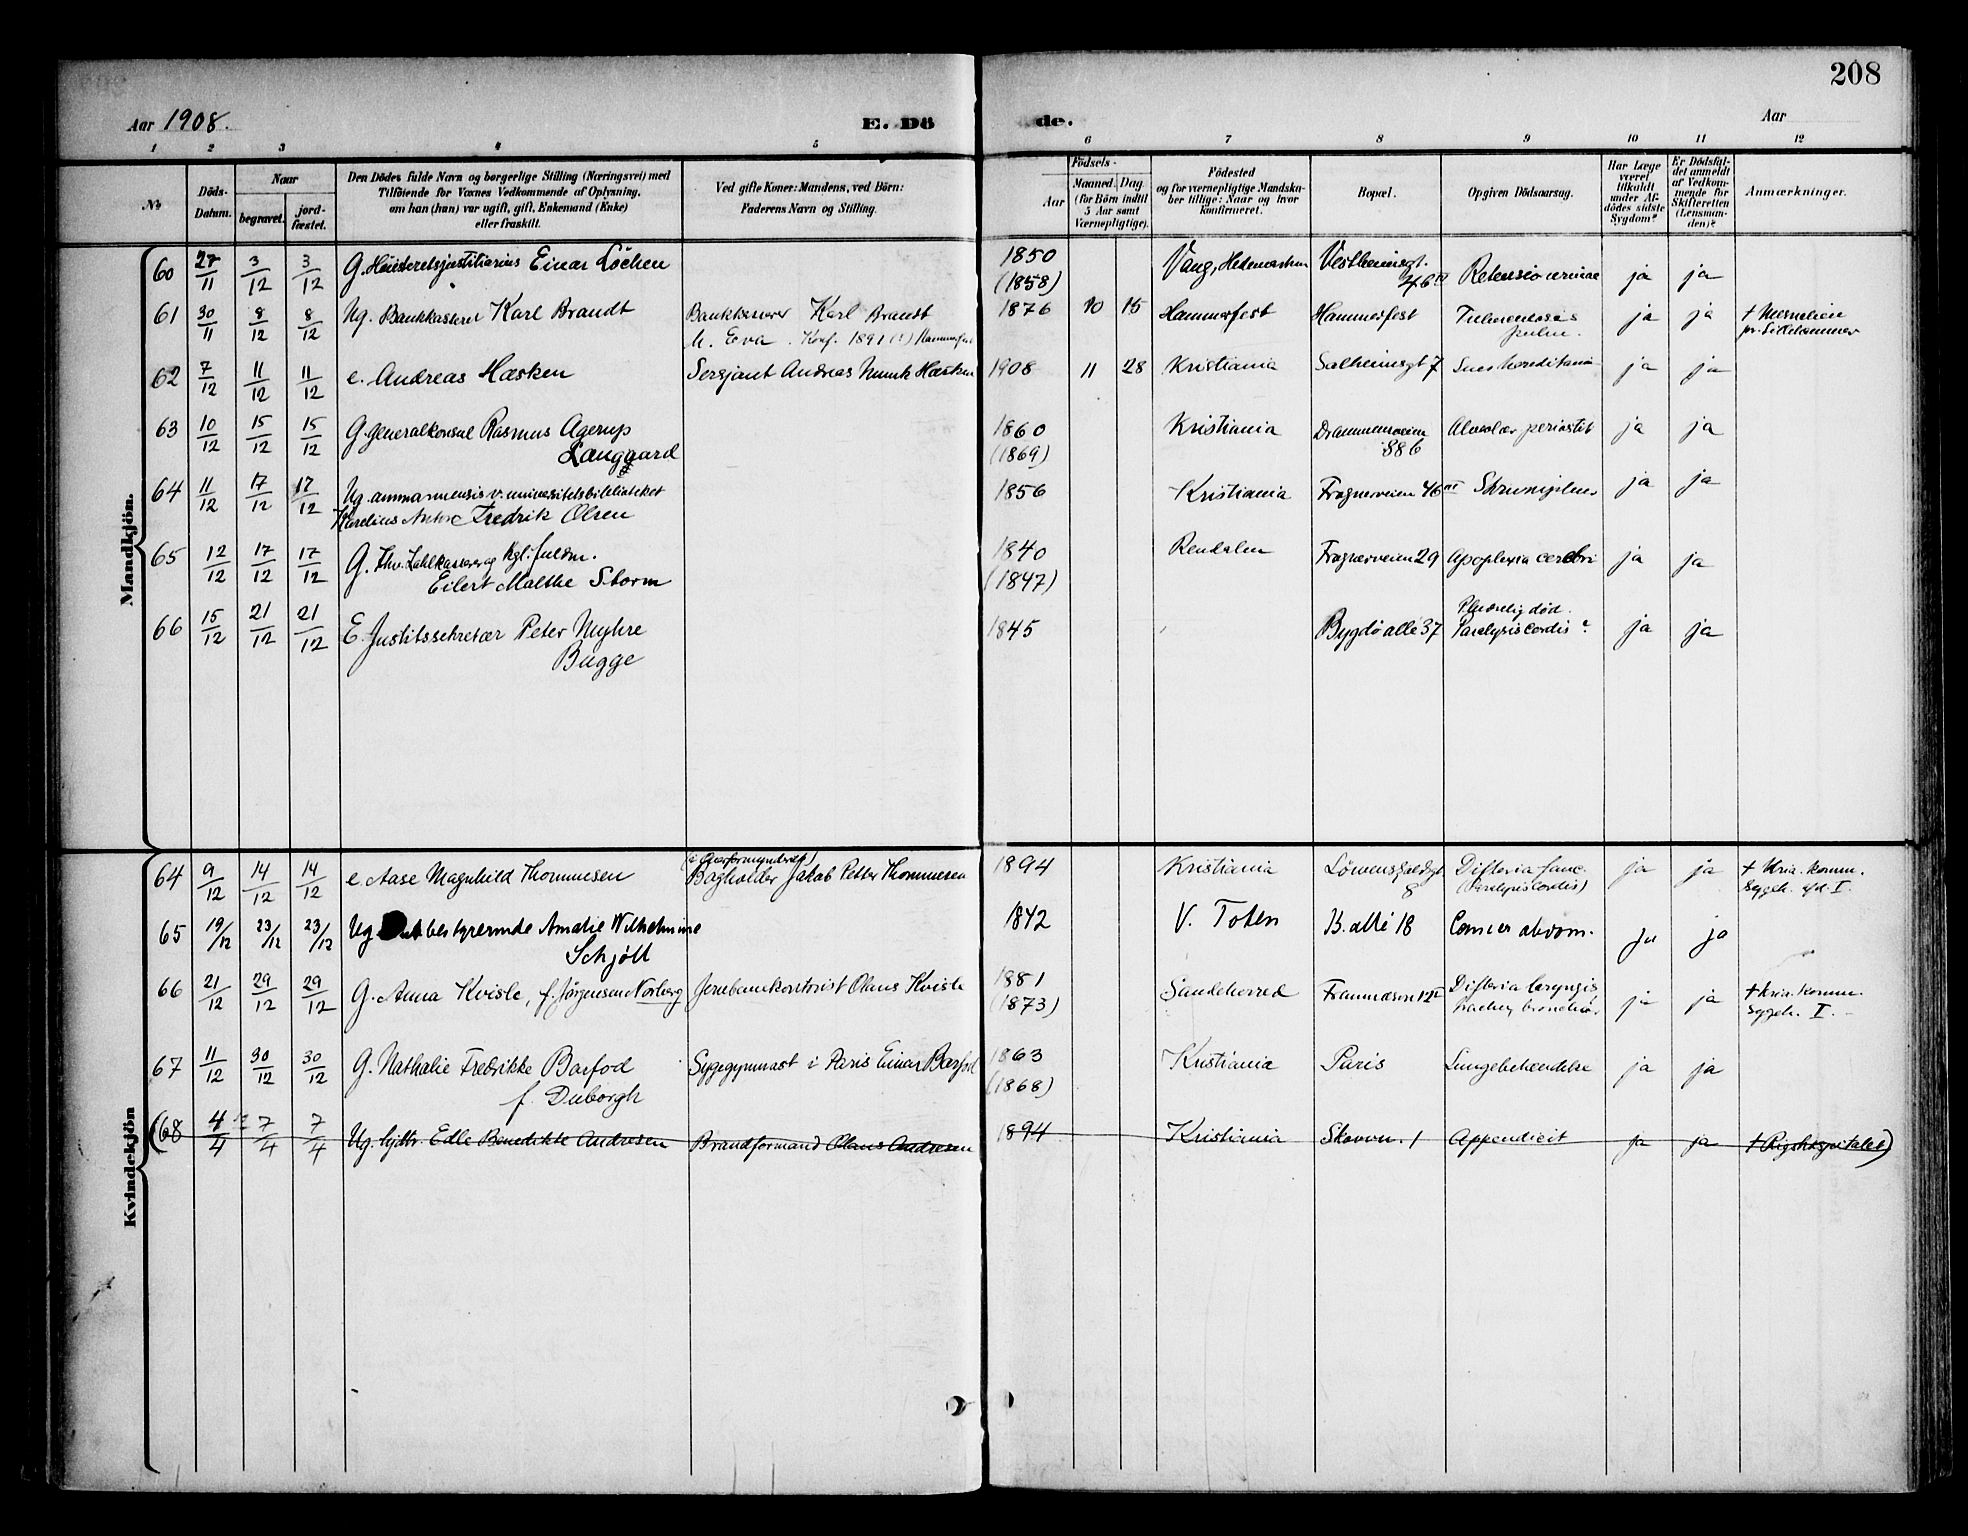 208
Aar 1908.
E. Dö
de.
Aar
1 2 3 4 5 6 7 8 9 10 11 12
No
Döds-Datum.
Naar
begravet.
jord-fæstet.
Den Dödes fulde Navn og borgerlige Stilling (Næringsvei) med
Tilföiende for Voxnes Vedkommende af Oplysning,
om han (hun) var ugift, gift, Enkemand (Enke)
eller fraskilt.
Ved gifte Koner: Mandens, ved Börn:
Faderens Navn og Stilling.
Födsels-
Aar
Maaned.
Dag
(for Börn indtil
5 Aar samt
Værnepligtige).
Födested
og for værnepligtige Mandska-
ber tillige: Naar og hvor
Konfirmeret.
Bopæl.
Opgiven Dödsaarsag.
Har Læge
været
tilkaldt
under Af-
dödes sidste
Sygdom?
Er Dödsfal-
det anmeldt
af Vedkom-
mende for
Skifteretten
(Lensman-
den)?
Anmærkninger.
Mandkjön.
60 27/11 3/12 3/12 G. Einar Löchen 1850 Vang, Hedemarken Vestheimsgt.
(1858) 46 IV Retensio urinae ja ja
61 30/11 8/12 8/12 Ug. Bankkasserer Karl Brandt Bankkasserer Karl Brandt 1876 10 15 Hammerfest Hammerfest Tuberculosis ja ja † Mesnalien
h. Eva. Konf. 1891 (!) Hammerfest pulm. pr. Lillehammer
62 7/12 11/12 11/12 e. Andreas Hæsken Sersjant Andreas Munk Hæsken 1908 11 28 Kristiania Solheimsgt 7 ja ja
63 10/12 15/12 15/12 G. generalkonsul Rasmus Agerup 1860 Kristiania Drammensveien Alveolær periostit ja ja
Langgaard (1869) 886
64 11/12 17/12 17/12 Ug. amanuensis v. universitetsbiblioteket 1856 Kristiania Frognerveien 46 III ja ja
Karelius Anton Fredrik Olsen
65 12/12 17/12 17/12 G. fhv. kgl. fuldm. 1840 Rendalen Frognerveien 29 Apoplexia cerebri ja ja
Eilert Malthe Storm (1847)
66 15/12 21/12 21/12 E. Justitssekretær Peter Myhre 1845 Bygdö allé 37 Pludselig död. ja ja
Bugge Paralysis Cordis?
Kvindekjön
64 9/12 14/12 14/12 e. Aase Magnhild Thommesen (i Overformynderiet) 1894 Kristiania Löwenskioldsgt Difteria fauc. ja ja † Kria. komm.
Bogholder Jakob Petter Thommesen 8 (Paralysis Cordis) sygeh. afd. I.
65 19/12 23/12 23/12 Ug. bestyrerinde Amalie Wilhelmine 1842 V. Toten B. allé 18 Cancer abdom. ja ja
Schjöll
66 21/12 29/12 29/12 G. Anna Kvisle, f. Jörgensen Norberg Jernbanekontorist Olaus Kvisle 1881 Sandeherred Framnæsvn 12 I Difteria laryngis ja ja † Kria. komm.
(1873) sygeh. I.
67 11/12 30/12 30/12 G. Nathalie Fredrikke Barfod Sygegymnast i Paris Einar Barfod 1863 Kristiania Paris Lungebetændelse ja ja
f. Duborgh (1868)
(68 4/4 7/4 7/4 Ug. hjdtr. Edle Benedikte Andresen Brandformand Olaus Andresen 1894 Kristiania Skovvn. 1 Appendicit ja ja † Rigshospitalet)